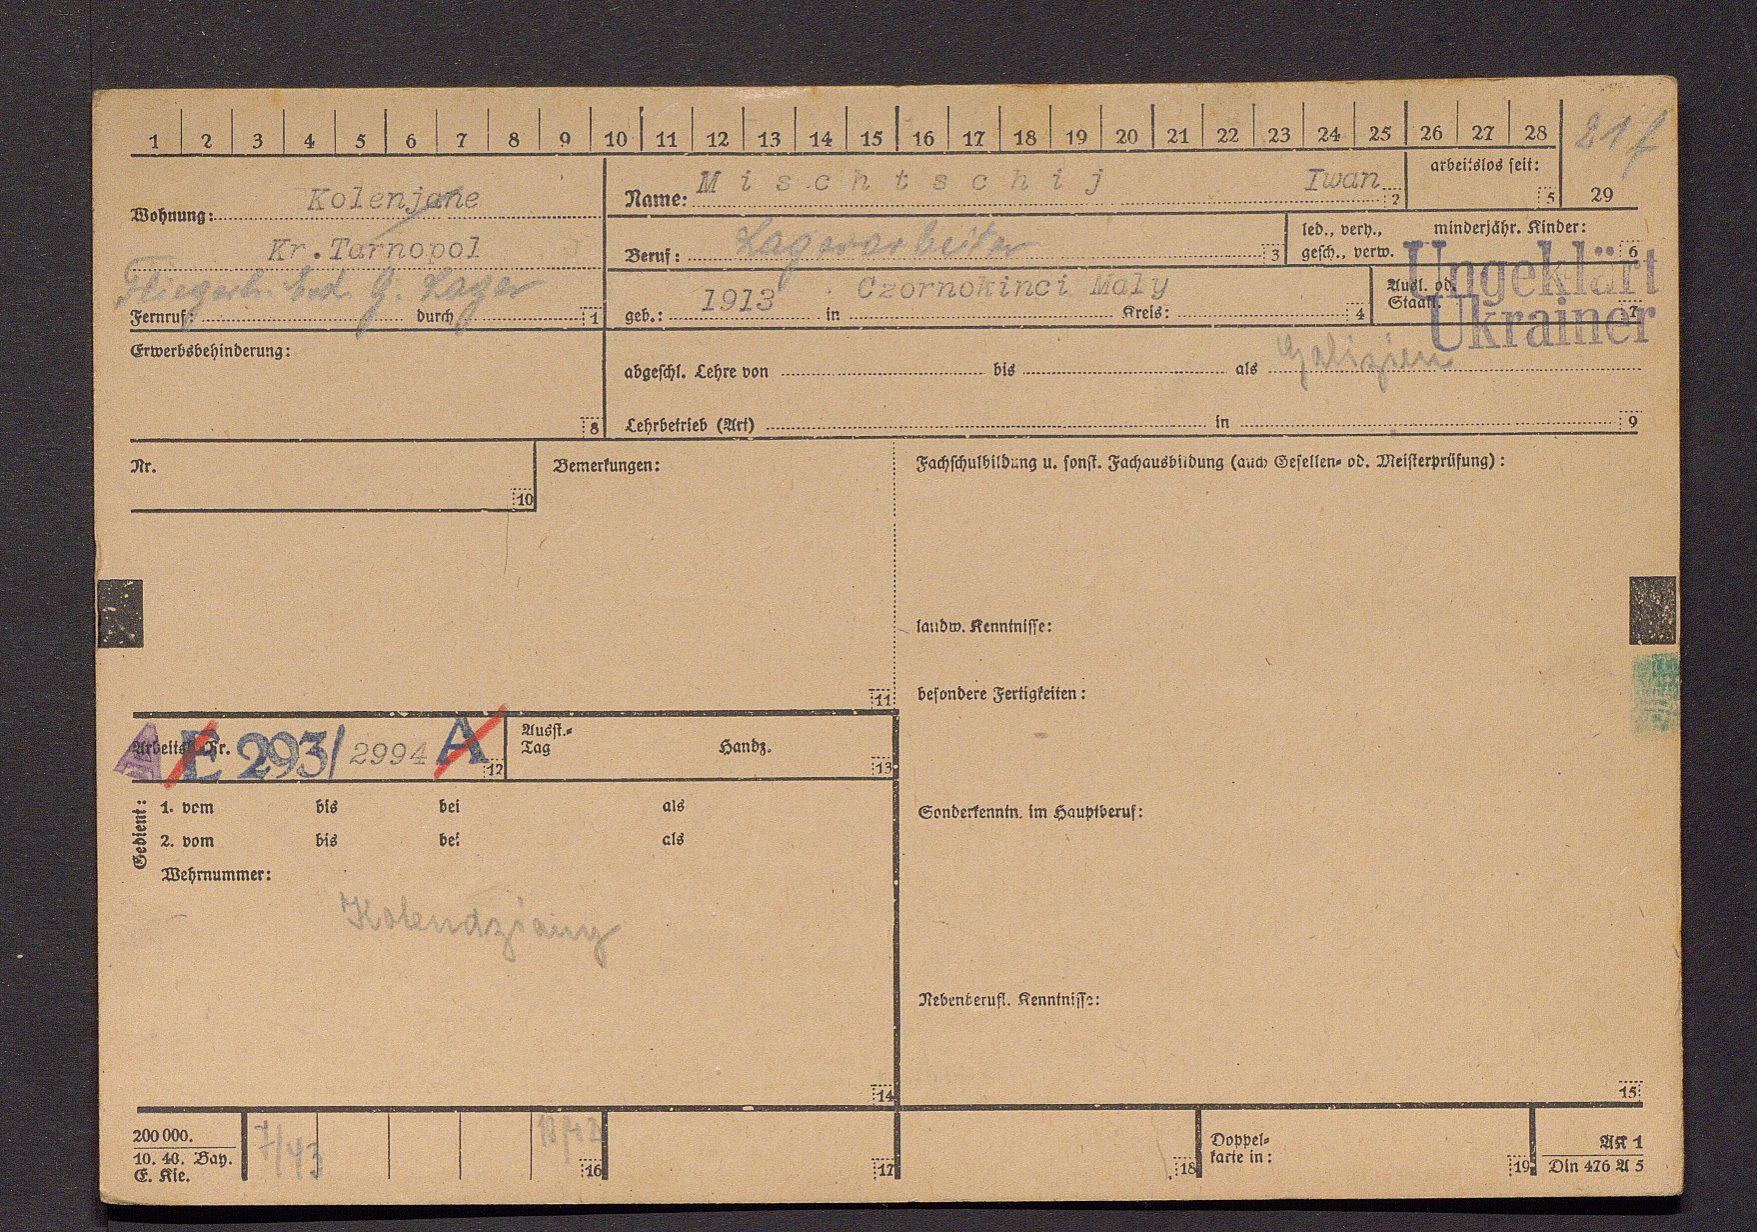 1 2 3 4 5 6 7 8 9 10 11 12 13 14 15 16 17 18 19 20 21 22 23 24 25 26 27 28 29
21f
Wohnung: Kolenjane
Kr. Tarnopol
G. Lager
Fernruf: durch 1
Name: Mischtschij Iwan 2
arbeitslos seit: 5
Beruf: Lagerarbeiter 3
led., verh., gesch., verw.
minderjähr. Kinder: 6
geb.: 1913 in Czornokinci Maly Kreis: 4
Ausl. od. Staatl. 7
Ungeklärt
Ukrainer
Galizien
Erwerbsbehinderung: 8
abgeschl. Lehre von bis als
Lehrbetrieb (Art) in 9
Nr. 10
Bemerkungen: 11
Fachschulbildung u. sonst. Fachausbildung (auch Gesellen- od. Meisterprüfung):
landw. Kenntnisse:
besondere Fertigkeiten:
Arbeitsb. Nr. E 293/2994 A 12
Ausst.-Tag Handz. 13
Gedient:
1. vom bis bei als
2. vom bis bei als
Wehrnummer:
Kolendziany
14
Sonderkenntn. im Hauptberuf:
Nebenberufl. Kenntnisse:
15
200 000.
10. 40. Bay.
E. Kie.
7/43
16 17 18
Doppelkarte in: 19
AK 1
Din 476 A 5